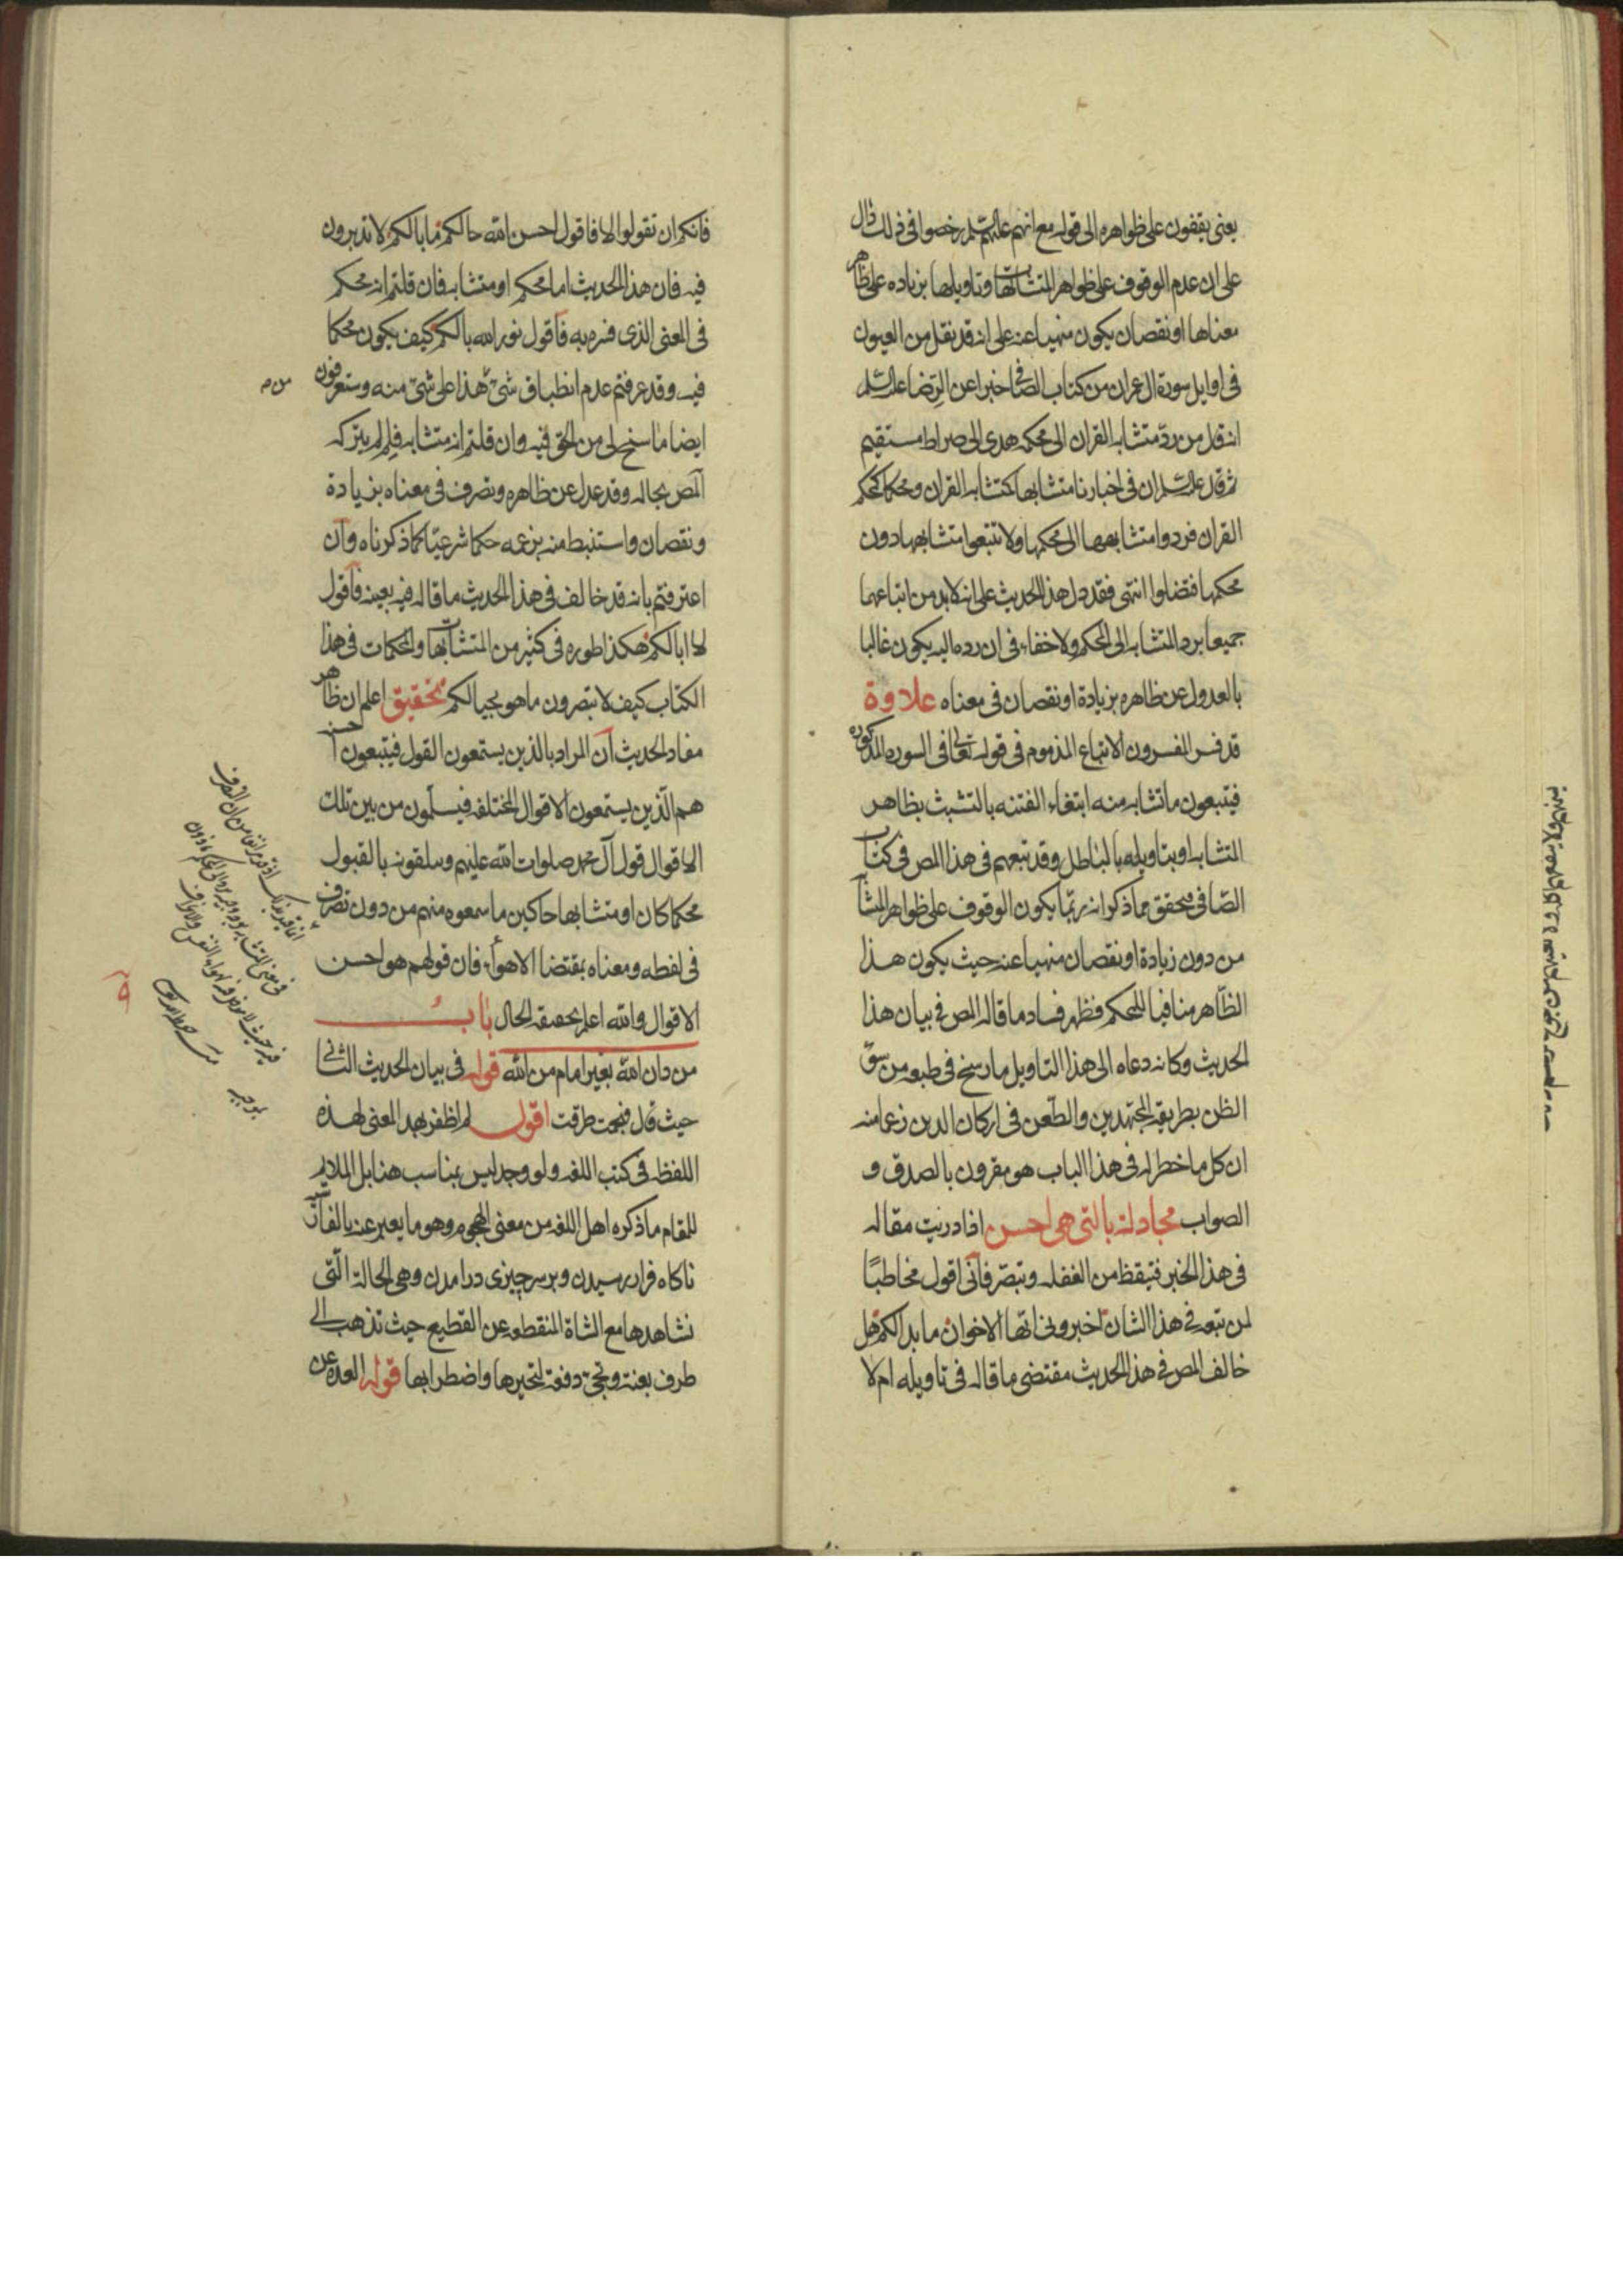 يعنى يقفون على ظواهره الى قوله مع انهم عليهم السلم رخصوا فى ذلك دال
على ان عدم الوقوف على ظواهر المتشابهات وتاويلها بزياده على ظاهر
معناها او نقصان يكون منهيا عنه على انه قد نقل من العيون
فى اوايل سورة ال عمران من كتاب الصافى خبرا عن الرضا عليه السلم
انه قال من رد متشابه القران الى محكمه هدى الى صراط مستقيم
ثم قال عليه السلم ان فى اخبارنا متشابها كمتشابه القران ومحكما كمحكم
القران فردوا متشابهها الى محكمها ولا تتبعوا متشابهها دون
محكمها فتضلوا انتهى فقد دل هذا الحديث على انه لابد من اتباعهما
جميعا برد المتشابه الى المحكم ولا خفاء فى ان رده اليه يكون غالبا
بالعدول عن ظاهره بزيادة او نقصان فى معناه علاوة
قد فسر المفسرون الاتباع المذموم فى قوله تعالى فى السوره المذكوره
فيتبعون ما تشابه منه ابتغاء الفتنه بالتشبث بظاهر
المتشابه او بتاويله بالباطل وقد تبعهم فى هذا المص فى كتاب
الصافى فتحقق مما ذكر انه ربما يكون الوقوف على ظواهر المتشابه
من دون زيادة او نقصان منهيا عنه حيث يكون هذا
الظاهر منافيا للمحكم فظهر فساد ما قاله المص فى بيان هذا
الحديث وكانه دعاه الى هذا التاويل ما رسخ فى طبعه من سوء
الظن بطريقة المجتهدين والطعن فى اركان الدين زعما منه
ان كل ما خطر له فى هذا الباب هو مقرون بالصدق و
الصواب مجادلة بالتى هى احسن اذا دريت مقاله
فى هذا الخبر فتيقظ من الغفله وتبصر فانى اقول مخاطبًا
لمن تبعه فى هذا الشان اخبرونى ايها الاخوان ما بدا لكم هل
خالف المص فى هذا الحديث مقتضى ما قاله فى تاويله ام لا
فانكم ان تقولوا لا فاقول احسن الله حالكم ما بالكم لا تدبرون
فيه فان هذا الحديث اما محكم او متشابه فان قلتم انه محكم
فى المعنى الذى فسره به فاقول نور الله بالكم كيف يكون محكما
فيه وقد عرفتم عدم انطباق شىء هذا على شىء منه وستعرفون
ايضا ما سنح لى من الحق فيه وان قلتم انه متشابه فلم لم يتركه
المص بحاله وقد عدل عن ظاهره وتصرف فى معناه بزيادة
ونقصان واستنبط منه بزعمه حكما شرعيّا كما ذكرناه وان
اعترفتم بانه قد خالف فى هذا الحديث ما قاله فيه بعينه فاقول
لا ابا لكم هكذا طوره فى كثير من المتشابهات والمحكمات فى هذا
الكتاب كيف لا تبصرون ما هو بحيالكم تحقيق اعلم ان ظاهر
مفاد الحديث ان المراد بالذين يستمعون القول فيتبعون احسنه
هم الّذين يستمعون الاقوال المختلفه فيسلمون من بين تلك
الاقوال قول آل محمد صلوات الله عليهم ويتلقونه بالقبول
محكما كان او متشابها حاكين ما سمعوه منهم من دون تصرف
فى لفظه ومعناه بمقتضا الاهواء فان قولهم هو احسن
الاقوال والله اعلم بحقيقة الحال باب
من دان الله بغير امام من الله قوله فى بيان الحديث الثانى
حيث قال فهجمت طرقت اقول لم اظفر بهذا المعنى لهذه
اللفظة فى كتب اللغه ولو وجد ليس بمناسب هنا بل الملايم
للمقام ما ذكره اهل اللغه من معنى الهجوم وهو ما يعبر عنه بالفارسيه
ناكاه فرا رسيدن وبر سر چيزى در امدن وهى الحالة الّتى
نشاهدها مع الشاة المنقطعه عن القطيع حيث تذهب الى
طرف بغتة وتجىء دفعة لتحيرها واضطرابها قوله العده عن